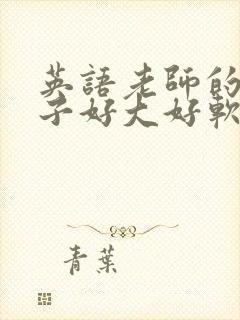 英語老師的
子好大好軟
青葉